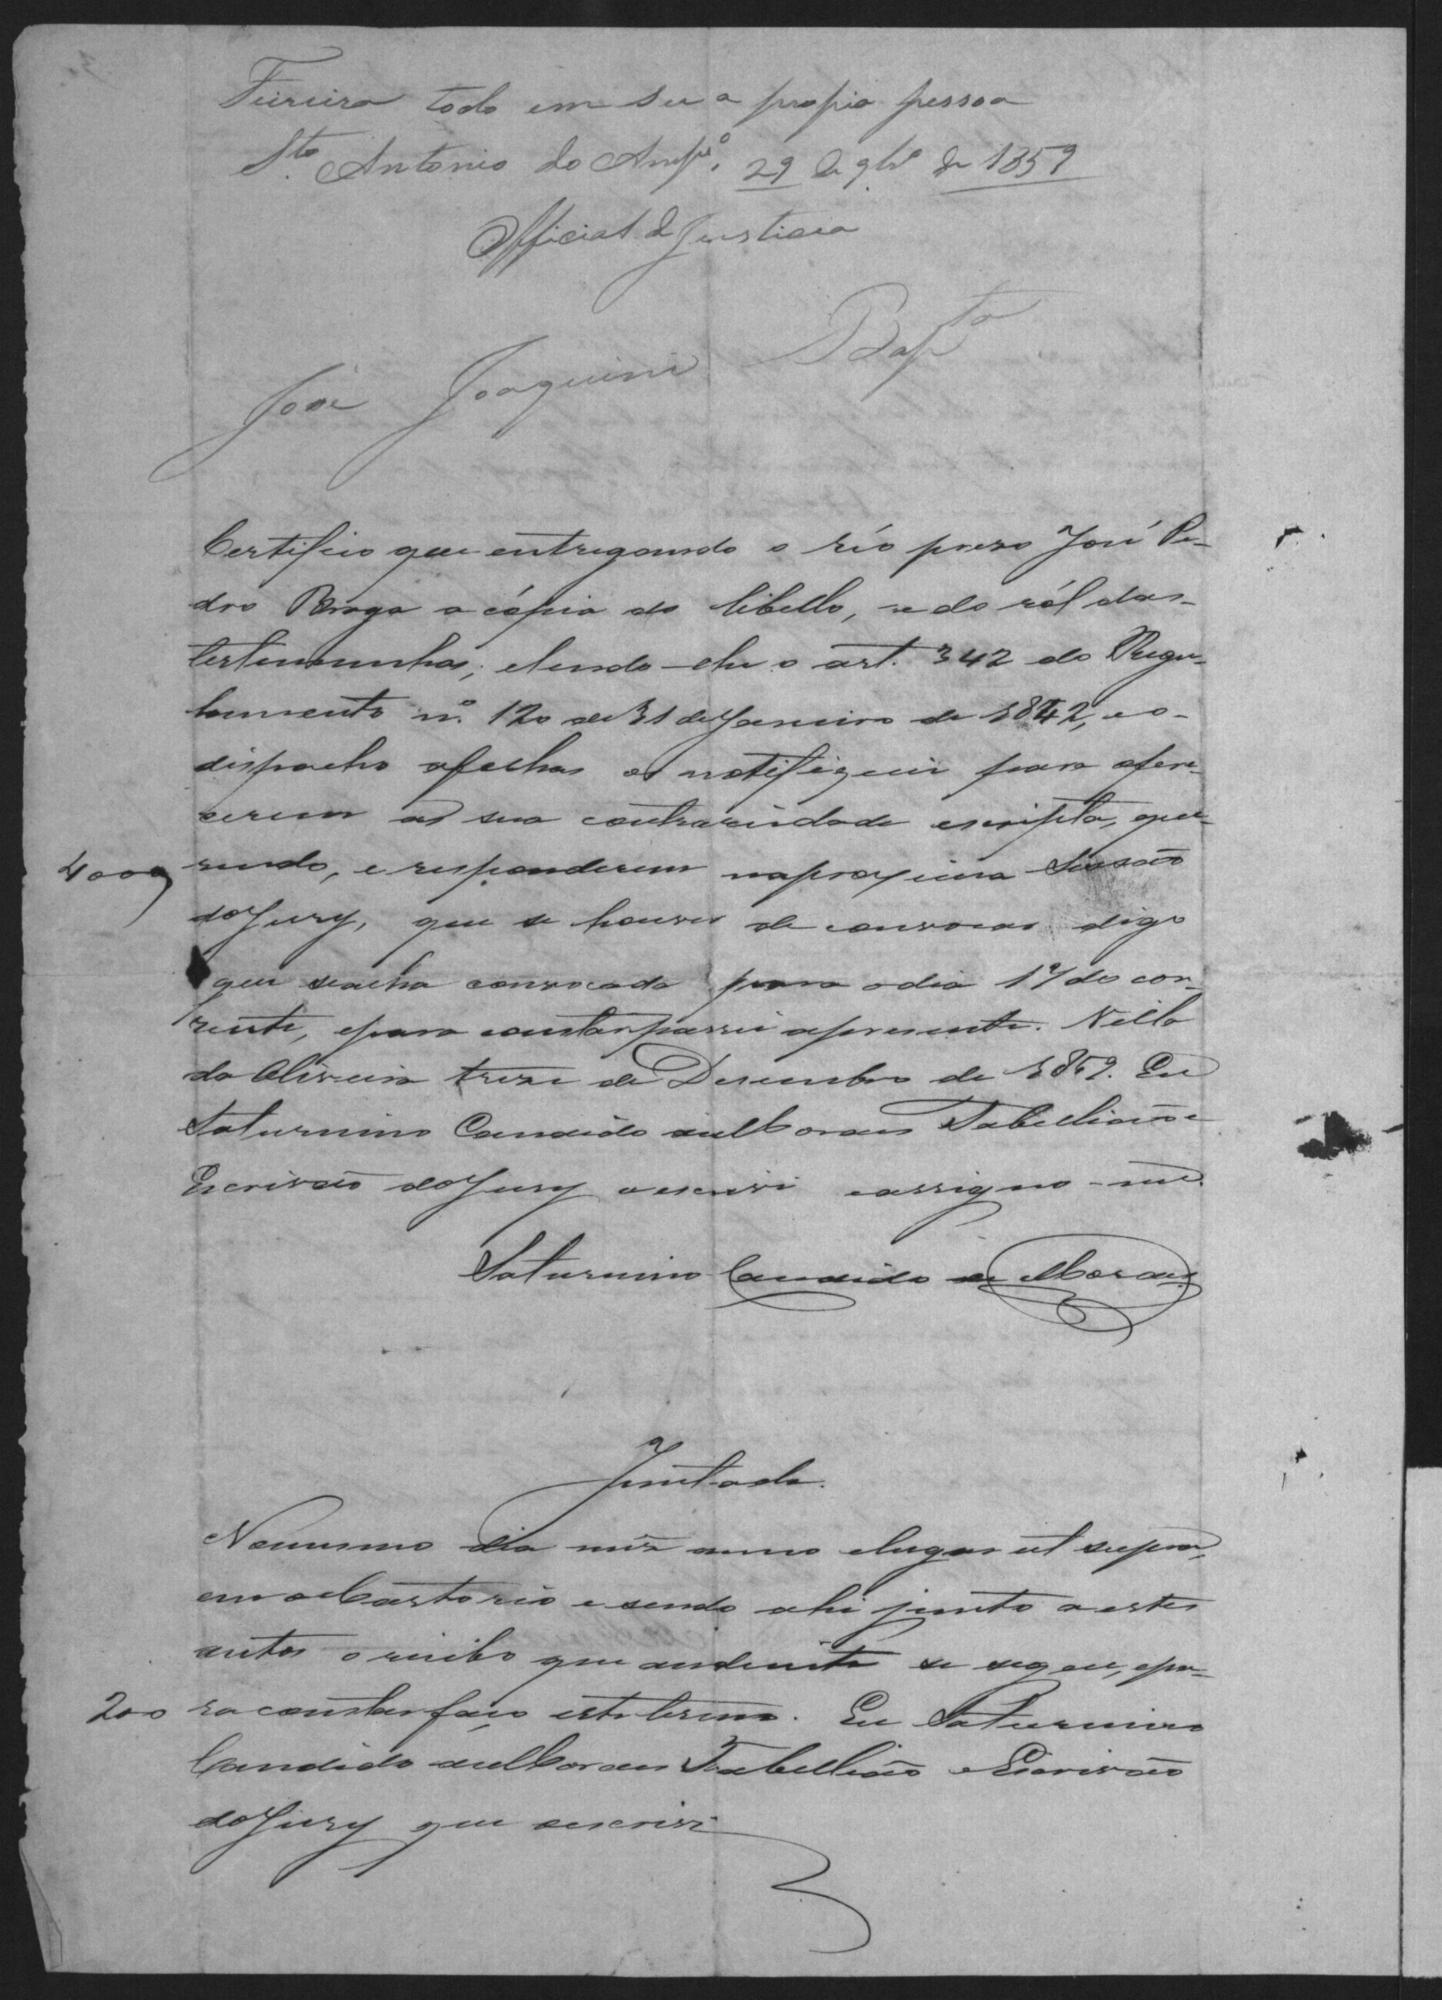 Ferreira todo em sua propia pessoa
Sto. Antonio do Ampo. 29 de 9bro de 1859
Official de Justicia
José Joaquim Bapta
Certifico que entregando o réo prezo José Pe-
dro Braga a cópia do libello, e do ról das-
testemunhas; e lendo-lhe o art. 342 do Regu-
lamento no. 120 de 31 de Janeiro de 1842, e o-
dispacho afolhas os notifiquei para ofere-
cerem a sua contrariedade escripta, que-
rendo, e responderem naproxima Sessão
4000
do Jury, que se houver de convocar digo
que seacha convocada para odia 19 do cor-
rente, epara constar passei apresente. Villa
da Oliveira treze de Desembro de 1859. Eu
Saturnino Candido de Moraes Tabellião e
Escrivão do Jury o escrevi e assigno-me.
Saturnino Candido de Moraes
Juntada.
No mesmo dia mez anno elugar ut supra,
em o Cartorio e sendo ahi junto a estes
autos o recibo que adiante se segue, epa-
200
ra constar faço este termo. Eu Saturnino
Candido de Moraes Tabellião e Escrivão
do Jury que o escrevi